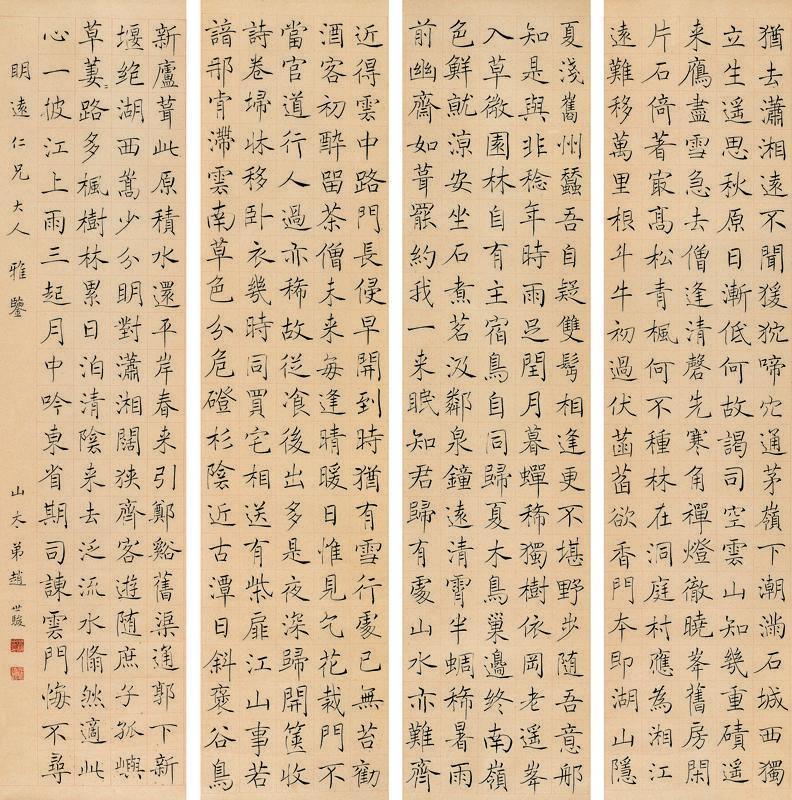 猶去瀟湘遠不聞猨狖啼穴通茅嶺下潮滿石城西獨
立生遥思秋原日漸低何故謁司空雲山知幾重磧遥
来鴈盡雪急去僧逢清磬先寒角禪燈徹曉峯舊房閑
片石倚著㝡高松青楓何不種林在洞庭村應為湘江
遠難移萬里根斗牛初過伏菡萏欲香門本即湖山隱
夏淺舊州蠶吾自疑雙髩相逢更不堪野步随吾意那
知是與非稔年時雨足閏月暮蟬稀獨樹依岡老遥峯
入草微園林自有主宿鳥自同歸夏木鳥巢邊終南嶺
色鮮就涼安坐石煮茗汲鄰泉鐘遠清霄半蜩稀暑雨
前幽齋如葺罷約我一来眠知君歸有處山水亦難齊
近得雲中路門長侵早開到時猶有雪行處已無苔勸
酒客初醉留茶僧未来每逢晴暖日惟見乞花栽門不
當官道行人過亦稀故從飡後出多是夜深歸開篋收
詩卷埽牀移卧衣幾時同買宅相送有柴扉江山事若
諳那肯滯雲南草色分危磴杉陰近古潭日斜褒谷鳥
新廬葺此原積水還平岸春来引鄭谿舊渠逢郭下新
堰絕湖西嵩少分明對瀟湘闊狹齊客遊随庶子孤嶼
草萋路多楓樹林累日泊清陰来去泛流水翛然適此
心一披江上雨三起月中吟東省期司諫雲門悔不尋
明遠仁兄大人雅鑒
山木弟趙世駿